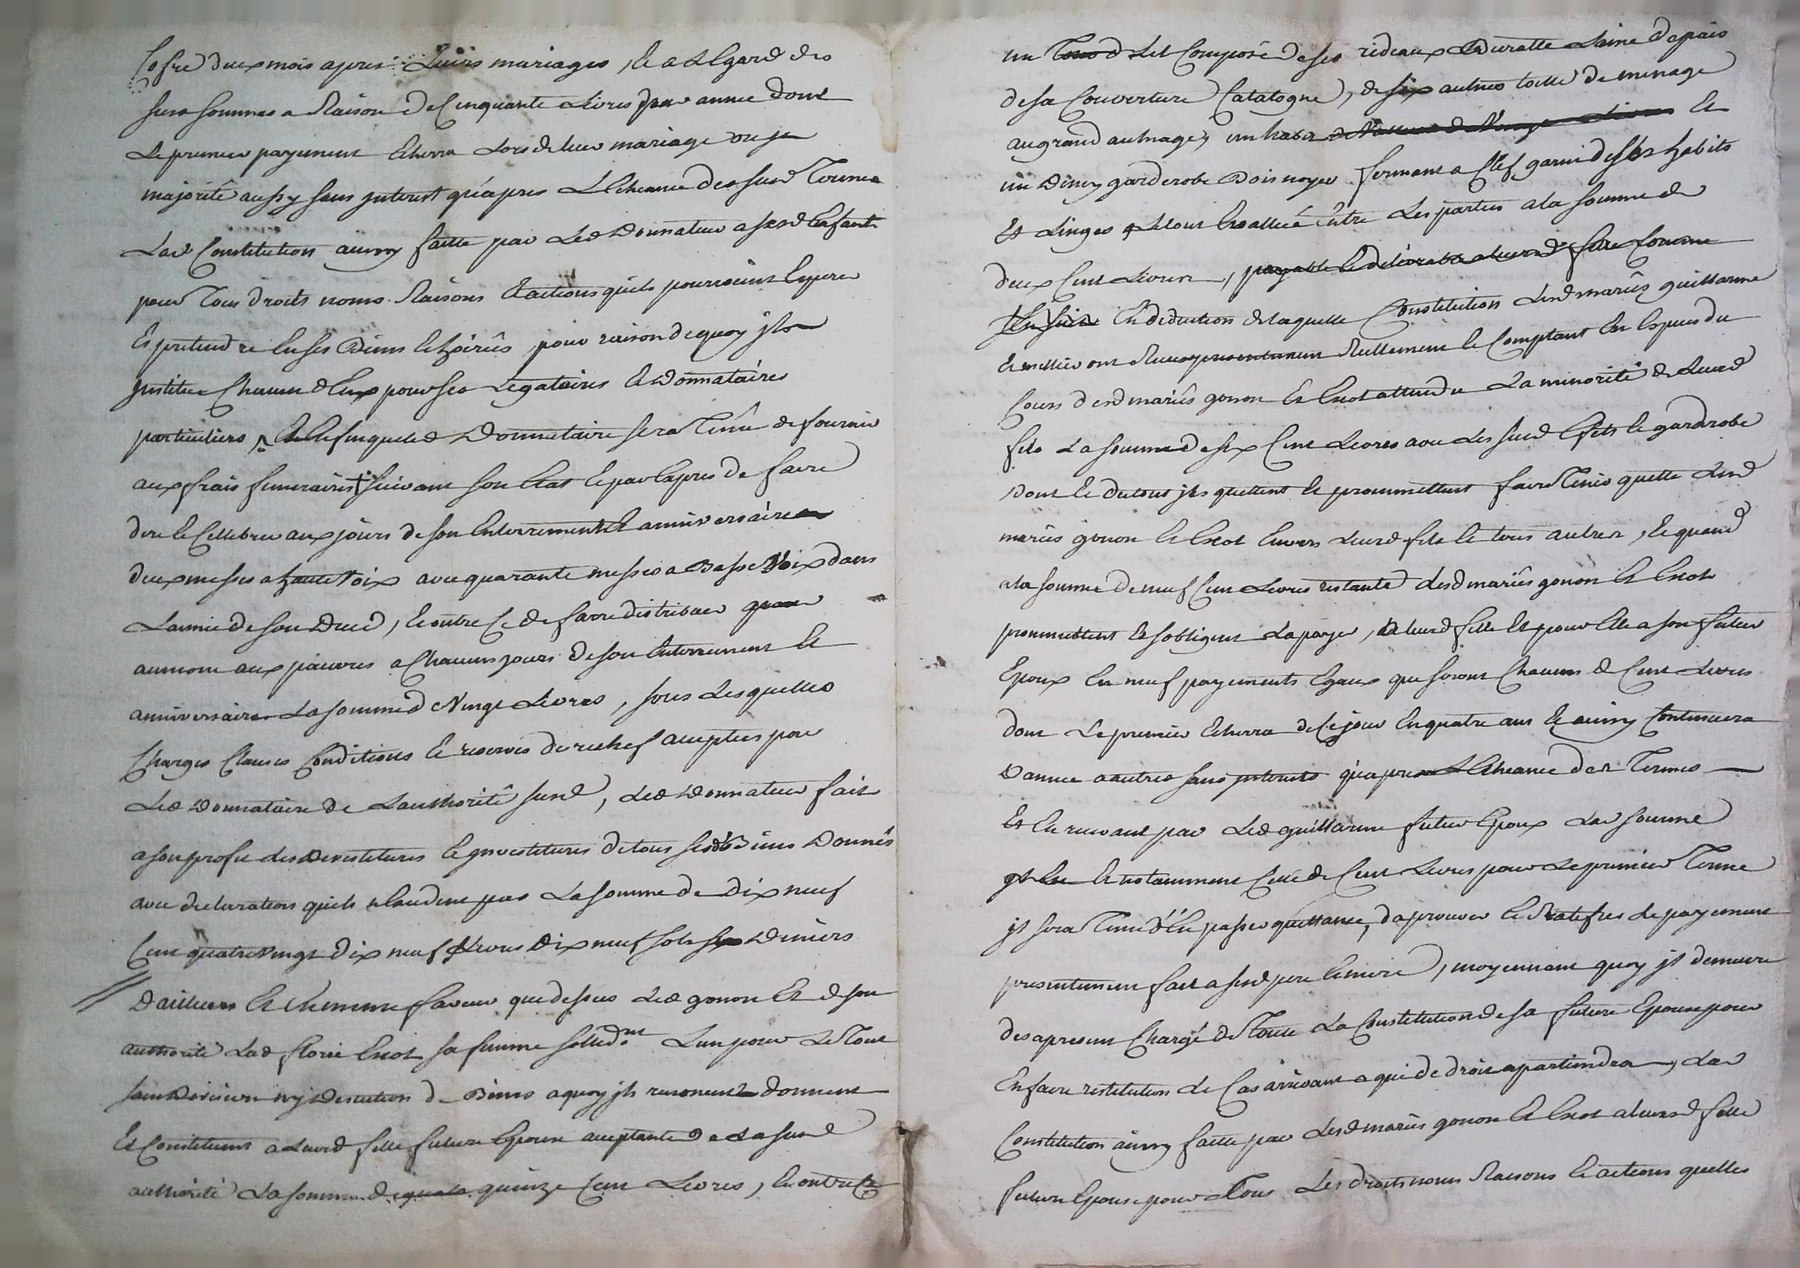 Cofre deux mois apres Leurs mariages, Et a Legard des
susd sommes a Raison de Cinquante Livres par année dont
Le premier payement Echerra Lors de leur mariage ou
majorité aussy sans jnterest qu'apres LEcheance des susd Termes
Lad Constitution ainsy faitte par Led Donnateur a sesd Enfants
pour Tous droits noms Raisons Et actions quils pourroient Espere
Et pretendre En ses Biens Et hoiries, pour raison de quoy jl
jnstitue Chacun dEux pour ses Legataires Et Donnataires
particuliers, Donnataire sera Tenu de fournir
aux frais funeraires suivant son Etat Et par Expres de faire
dire Et Cellebrer aux jours de son Enterrement Et anniversaire
deux messes a haute Voix avec quarante messes a Basse Voix dans
Lannée de son Deced, Et outre Ce de faire distribuer pour
aumone aux pauvres a Chacuns jours de son Enterrement Et
anniversaire La somme de Vingt Livres, sous Lesquelles
Charges Clauses Conditions Et reserves derechef acceptées par
Led Donnataire de Lauthorité susd, Led Donnateur fait
a son profit des Devestitures Et jnvestitures de tous sesds Biens Donnés
avec declaration quils nExcedent pas La somme de dix neuf
Cent quatre Vingt dix neuf Livres dix neuf sols six Deniers
D'ailleurs Et En meme faveur que dessus Led gonon Et de son
authorité Lad florie Exot sa femme sollidt Lun pour Le Tout
sans Division ny Discution de Biens a quoy jls renoncent donnent
Et Constituent a Leurd fille future Epouse acceptante de La susd
authorité La somme de quinze Cent Livres, Et outre Ce
un Lit Composé de ses rideaux Cadratte Laine depais
de sa Couverture (Catalogne), de six autres toille de menage
au grand aulnage, un habit Et
un Demy garderobe Bois noyer fermant a Clef garni de ses habits
Et Linges Le tout Evallué Entre Les parties a la somme de
deux Cent Livres, payable Et delivrable
En deduction de laquelle Constitution Lesd mariés guillarme
Et mellier ont Reçu presentement Reellement Et Comptant En Especes du
Cours desd mariés gonon Et Exot attendu La minorité de Leurd
fils La somme de six Cent Livres avec Les susd Effets Et garderobe
Dont Et du tout jls quittent Et prommettent faire Tenir quitte Lesd
mariés gonon Et Exot Envers Leurd fils Et tous autres, Et quand
a la somme de neuf Cent Livres restante Lesd mariés gonon Et Exot
prommettent Et sobligent La payer, a Leurd fille Et pour Elle a son futur
Epoux En neuf payements Egaux qui seront Chacuns de Cent Livres
dont Le premier Echerra de Ce jour En quatre ans Et ainsy Continuera
D'année a autres sans jnterests qu'apres LEcheance des Termes
Et En recevant par Led guillarme futur Epoux Lad somme
Et notamment Celle de Cent Livres pour Le premier Terme
jl sera Tenu d'En passer quittance, d'aprouver Et Ratifier Le payement
presentement fait a sesd pere Et mere, moyennant quoy jl demeure
des apresent Chargé de Toute La Constitution de sa future Epouse pour
En faire restitution Le Cas arrivant a qui de droit apartiendra, Lad
Constitution ainsy faitte par Lesd mariés gonon Et Exot a Leurd fille
future Epouse pour Tous Les droits noms Raisons Et actions quelles